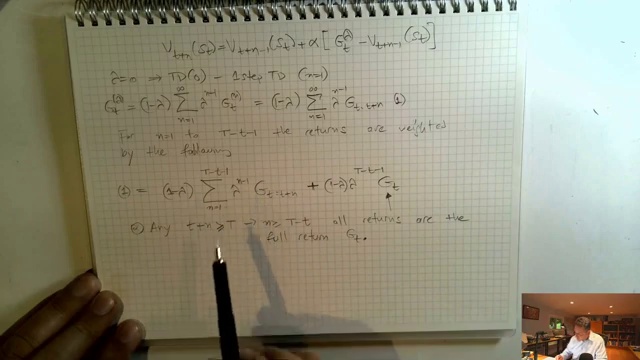 V_{t+n}(S_t) = V_{t+n-1}(S_t) + α [ G_t^{(λ)} - V_{t+n-1}(S_t) ]
λ=0 ⇒ TD(0) - 1 step TD (n=1)
G_t^{(λ)} = (1-λ) ∑_{n=1}^{∞} λ^{n-1} G_t^{(n)} = (1-λ) ∑_{n=1}^{∞} λ^{n-1} G_{t:t+n} (1)
For n=1 to T-t-1 the returns are weighted
by the following
(1) = (1-λ) ∑_{n=1}^{T-t-1} λ^{n-1} G_{t:t+n} + (1-λ) λ^{T-t-1} G_t
Any t+n ≥ T → n ≥ T-t all returns are the
full return G_t.